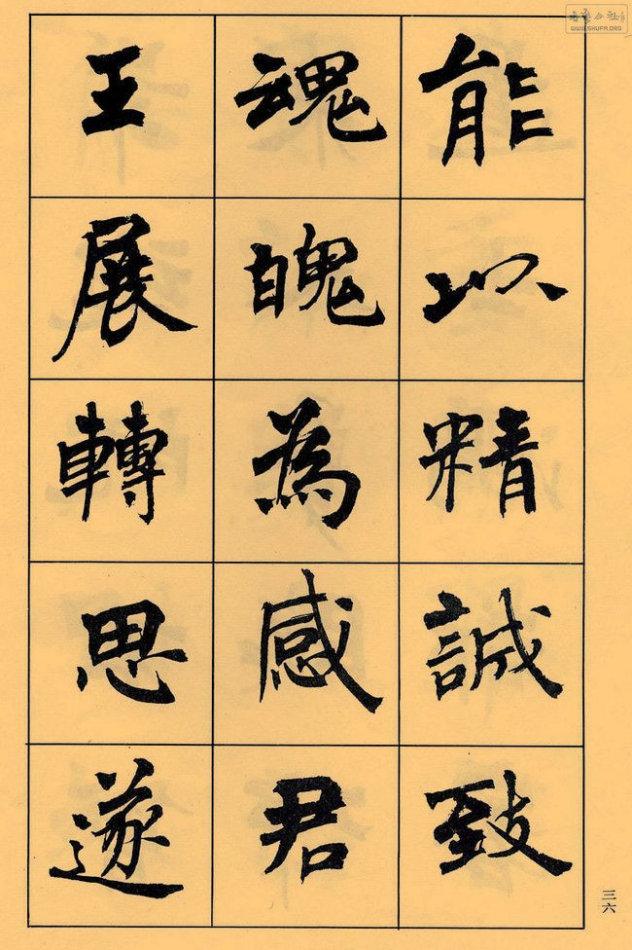 能以精誠致
魂魄為感君
王展轉思遂
三六
WWW.SHUFA.ORG